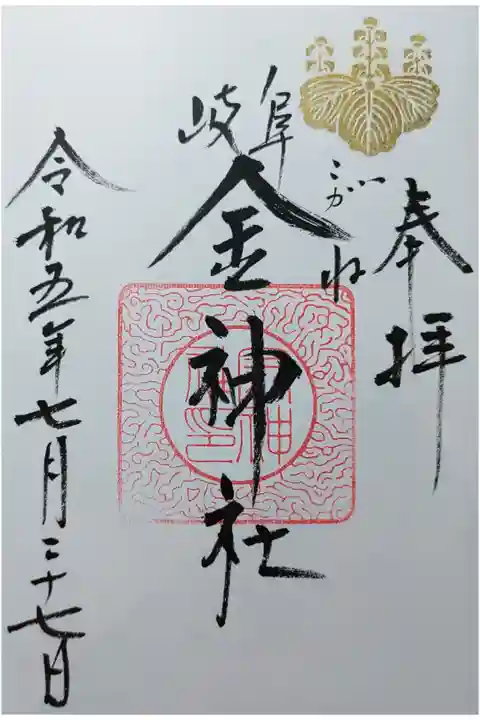 奉拝
岐阜
金神社
こがね
令和五年七月二十七日